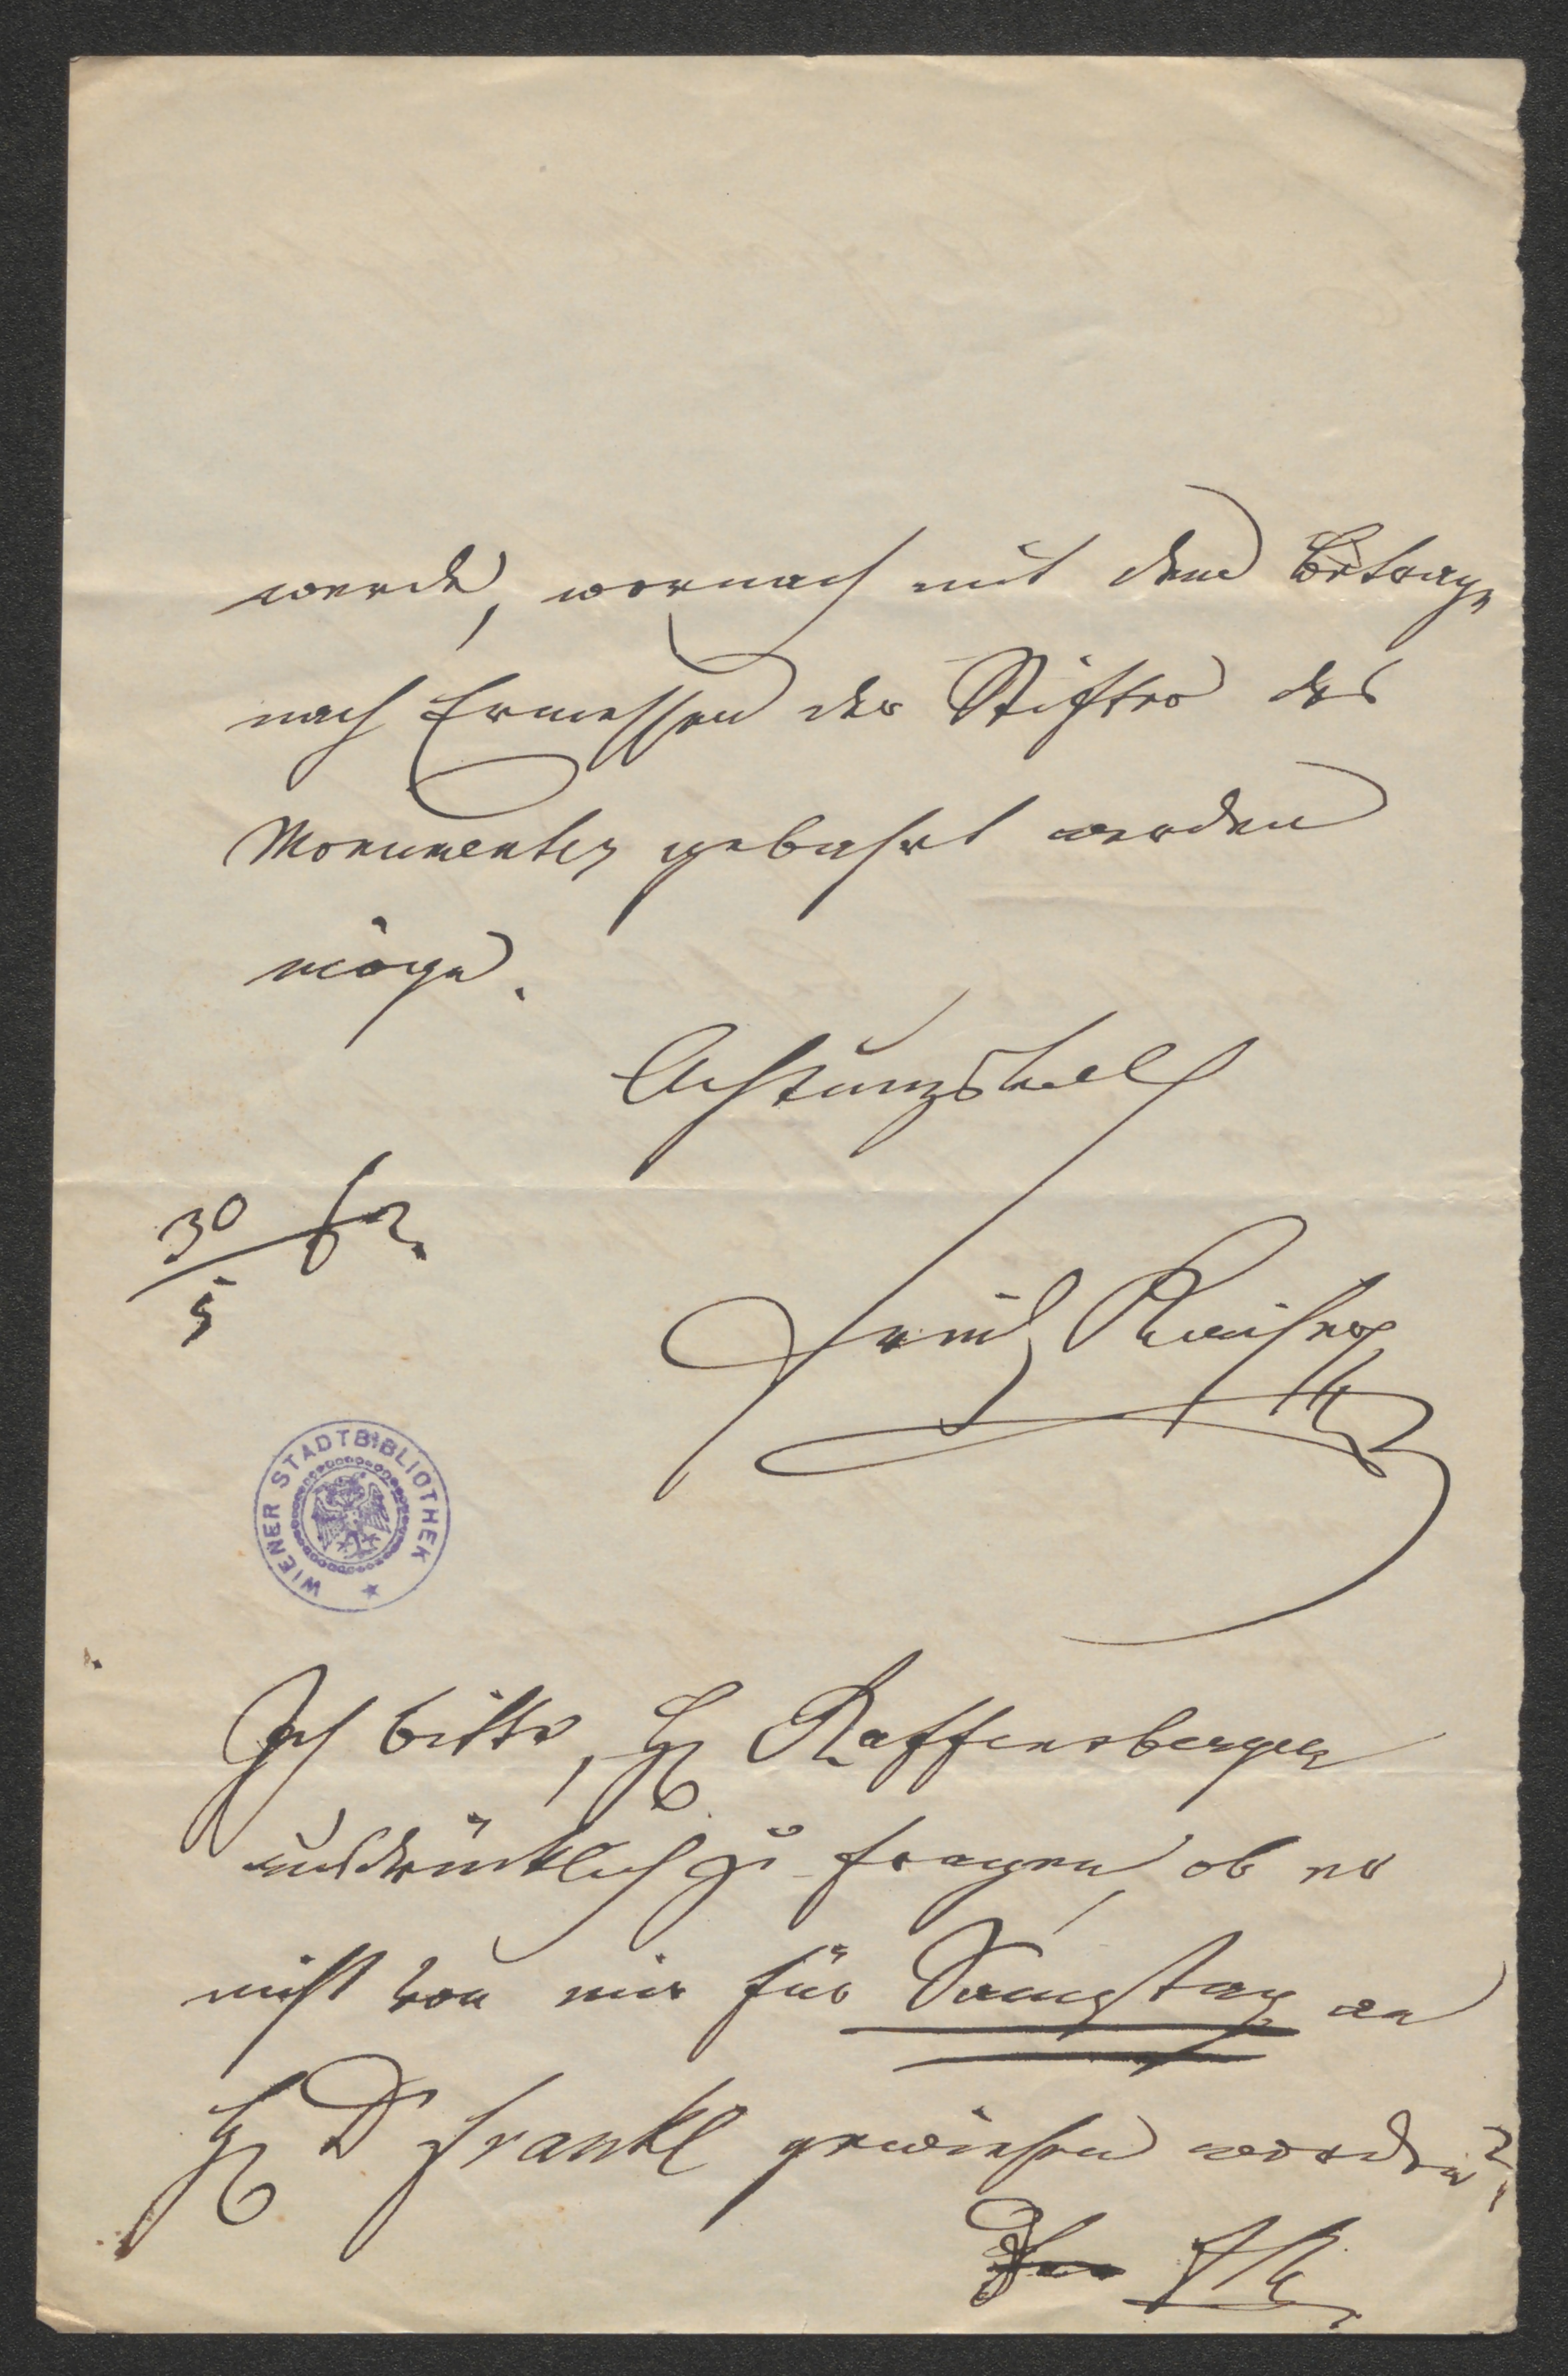 werde, wornach mit dem Betrage
nach Ermessen der Stifter des
Monumentes gebahrt werden
möge.
Achtungsvoll
30/5 62.
Friedr Kaiser
WIENER STADTBIBLIOTHEK
Ich bitte, H Raffensberger
ausdrücklich zu fragen, ob er
nicht von mir für Samstag an
H Dr Frankl gewiesen worden?
FK